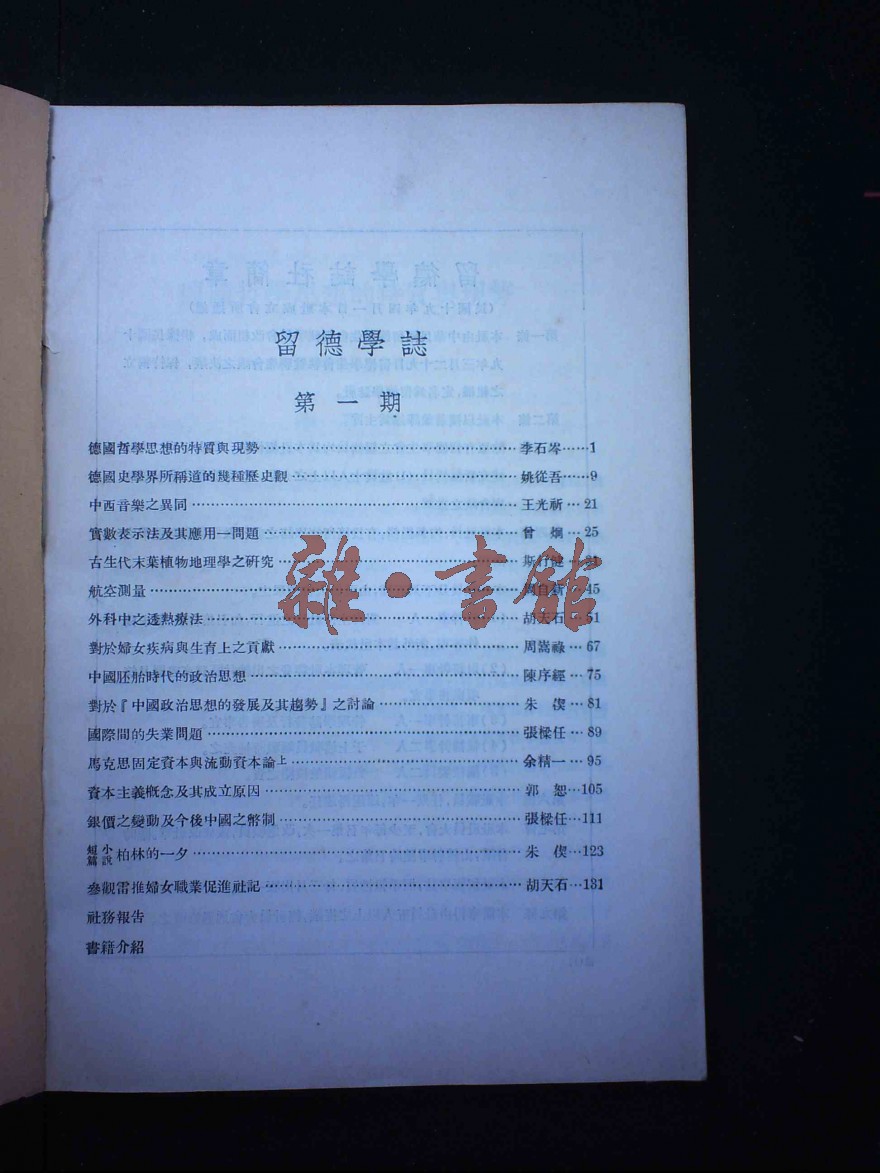 留德學誌
第一期
德國哲學思想的特質與現勢……李石岑……1
德國史學界所稱道的幾種歷史觀……姚從吾……9
中西音樂之異同……王光祈…21
實數表示法及其應用一問題……曾 炯…25
古生代末葉植物地理學之硏究……斯行健
航空測量……周自新…45
外科中之透熱療法……胡天石…51
對於婦女疾病與生育上之貢獻……周嵩祿…67
中國胚胎時代的政治思想……陳序經…75
對於『中國政治思想的發展及其趨勢』之討論……朱 偰…81
國際間的失業問題……張樑任…89
馬克思固定資本與流動資本論上……余精一…95
資本主義槪念及其成立原因……郭 恕…105
銀價之變動及今後中國之幣制……張樑任…111
短篇小說 柏林的一夕……朱 偰…123
參觀雷推婦女職業促進社記……胡天石…131
社務報告
書籍介紹
雜·書館